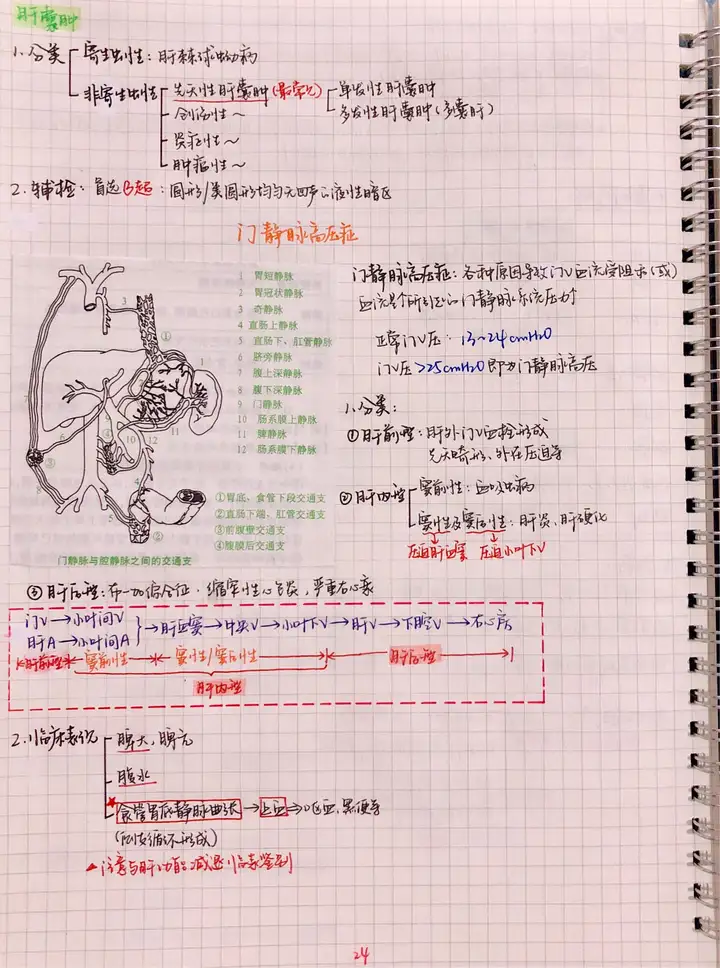 肝囊肿
1.分类 寄生虫性：肝棘球蚴病
非寄生虫性 先天性肝囊肿(最常见) 单发性肝囊肿
多发性肝囊肿(多囊肝)
创伤性～
炎症性～
肿瘤性～
2.辅检：首选B超：圆形/类圆形均匀无回声的液性暗区
门静脉高压症
1 胃短静脉
2 胃冠状静脉
3 奇静脉
4 直肠上静脉
5 直肠下、肛管静脉
6 脐旁静脉
7 腹上深静脉
8 腹下深静脉
9 门静脉
10 肠系膜上静脉
11 脾静脉
12 肠系膜下静脉
①胃底、食管下段交通支
②直肠下端、肛管交通支
③前腹壁交通支
④腹膜后交通支
门静脉与腔静脉之间的交通支
门静脉高压症：各种原因导致门V血流受阻和(或)
血流量个所引起的门静脉系统压力↑
正常门V压：13~24cmH2O
门V压>25cmH2O即为门静脉高压
1.分类：
①肝前型：肝外门V血栓形成
先天畸形、外在压迫等
②肝内型 窦前性：血吸虫病
窦性及窦后性：肝炎、肝硬化
压迫肝血窦 压迫小叶下V
③肝后型：布-加综合征，缩窄性心包炎，严重右心衰
门V→小叶间V
肝A→小叶间A
→肝血窦→中央V→小叶下V→肝V→下腔V→右心房
肝前型 窦前性 窦性/窦后性 肝后型
肝内型
2.临床表现 脾大，脾亢
腹水
★食管胃底静脉曲张→出血→呕血、黑便等
(侧支循环形成)
▲注意与肝功能减退临表鉴别
24